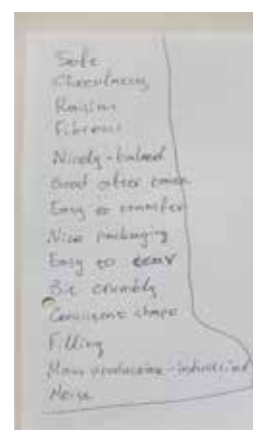 Safe
Chocolatey
Raisins
Fibrous
Nicely-baked
Good after taste
Easy to transfer
Nice packaging
Easy to tear
Bit crumbly
Consistent shape
Filling
Mass producing - industrial